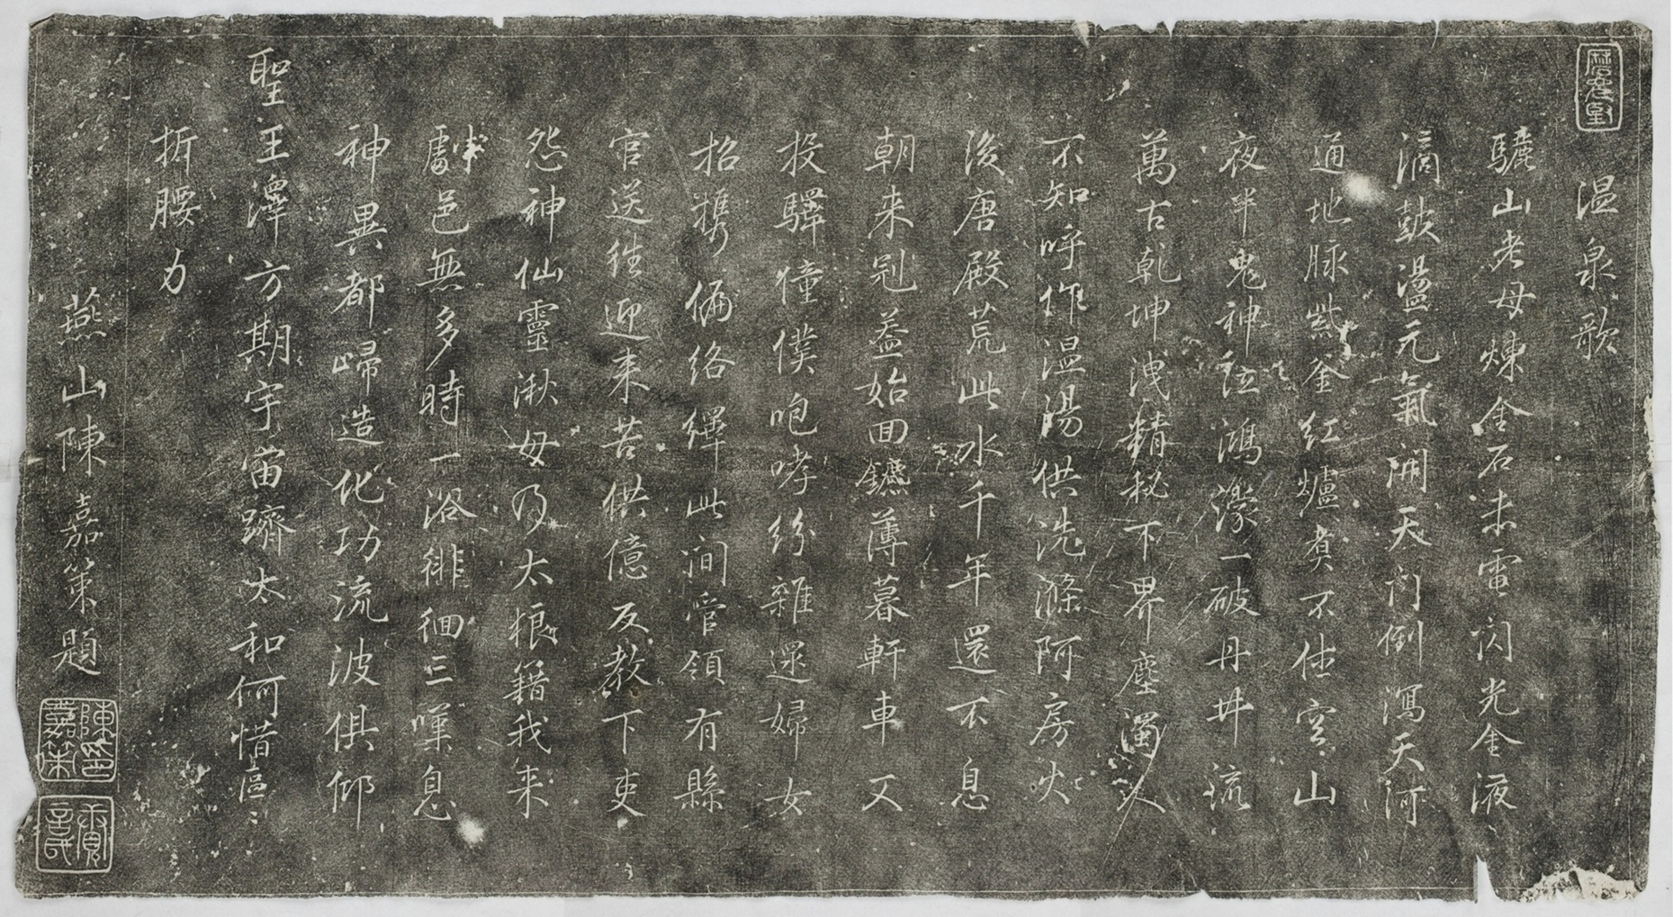 温泉歌
驪山老母煉金石赤電閃光金液
滴鼓盪元氣開天门倒瀉天河
通地脉紫釜红爐煑不住空山
夜半鬼神泣鴻濛一破丹井流
萬古乾坤洩精秘下界塵濁人
不知呼作温湯供洗滌阿房火
後唐殿荒此水千年還不息
朝来冠盖始回鑣薄暮軒車又
投驛僮僕咆哮紛雜還婦女
招携俩络繹此间管領有縣
官送往迎来苦供億反教下吏
怨神仙靈湫毋乃太粮籍我来
劇邑無多時一浴徘徊三嘆息
神異都歸造化功流波俱仰
聖王澤方期宇宙躋太和何惜區〻
折腰力
燕山陳嘉策題
陳嘉策印